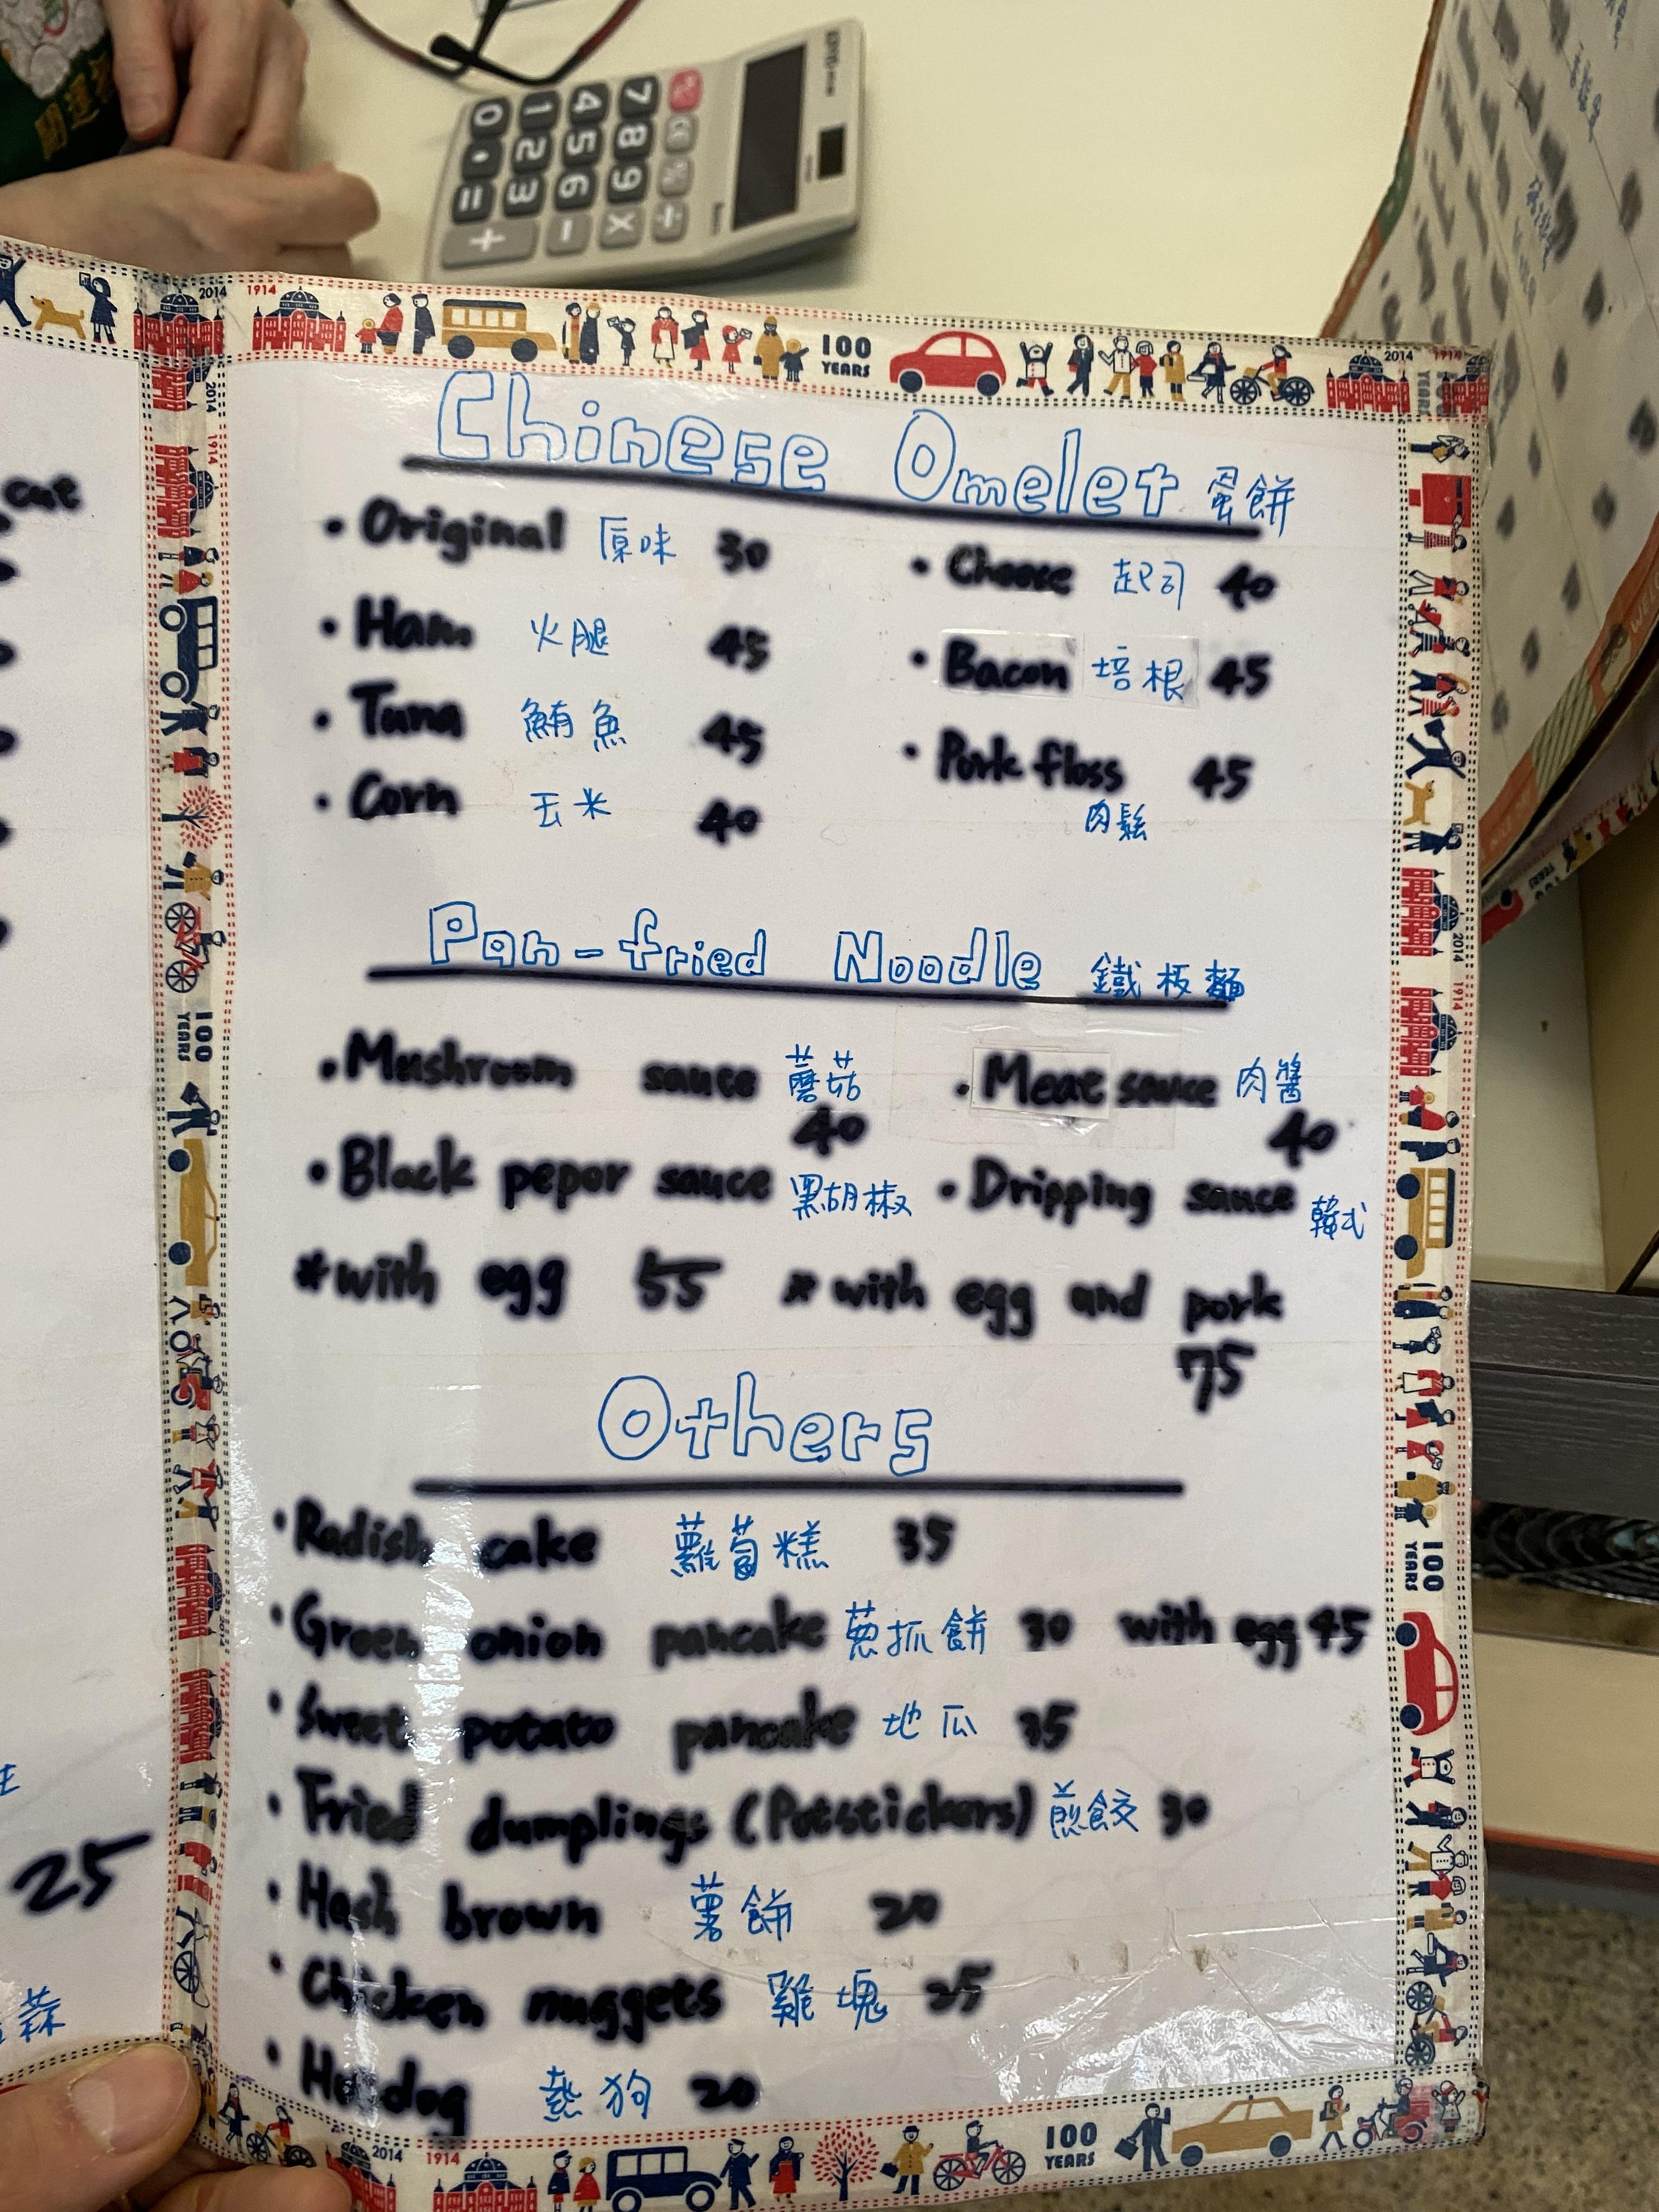 Chinese Omelet 蛋餅
• Original 原味 30
• Cheese 起司 40
• Ham 火腿 45
• Bacon 培根 45
• Tuna 鮪魚 45
• Pork floss 45
肉鬆
• Corn 玉米 40
Pan-fried Noodle 鐵板麵
• Mushroom sauce 蘑菇
40
• Meat sauce 肉醬
40
• Black peper sauce 黑胡椒
• Dripping sauce 韓式
*with egg 55
* with egg and pork
75
Others
• Radish cake 蘿蔔糕 35
• Green onion pancake 蔥抓餅 30 with egg 45
• Sweet potato pancake 地瓜 35
• Fried dumplings (Potstickers) 煎餃 30
• Hash brown 薯餅 20
• Chicken nuggets 雞塊 25
• Hotdog 熱狗 20
25
蒜
100 YEARS
1914
2014
7 8 9 X
4 5 6 -
1 2 3 +
0 . =